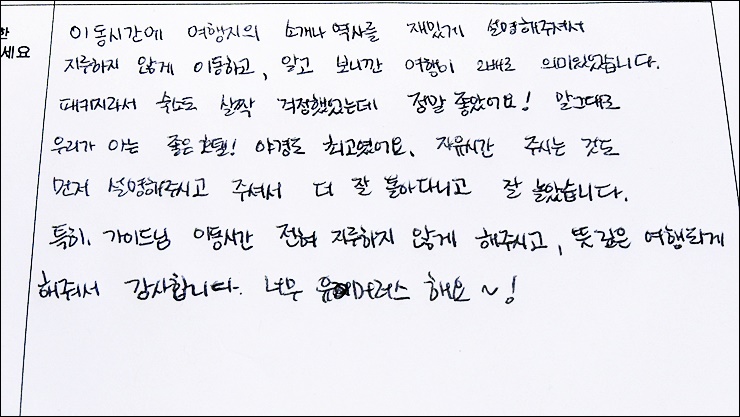 한
세요
이동시간에 여행지의 소개나 역사를 재밌게 설명해주셔서
지루하지 않게 이동하고, 알고 보니깐 여행이 2배로 의미있었습니다.
패키지라서 숙소도 살짝 걱정했었는데 정말 좋았어요! 말그대로
우리가 아는 좋은 호텔! 야경도 최고였어요. 자유시간 주시는 것도
먼저 설명해주시고 주셔서 더 잘 돌아다니고 잘 놀았습니다.
특히, 가이드님 이동시간 전혀 지루하지 않게 해주시고, 뜻깊은 여행하게
해줘서 감사합니다. 너무 유머러스 해요~!